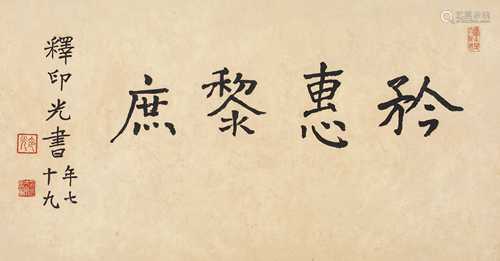 矜惠黎庶
釋印光書
年七十九